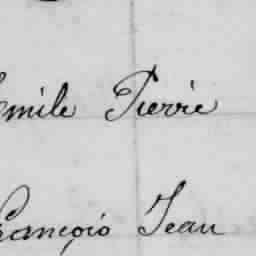 Emile Pierre
François Jean